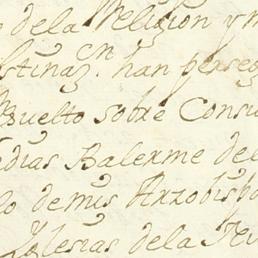 dela Religion y m
stinaz.on han perseg
Buelto sobre Consu
dias Balerme del
lo demis Arzobisp
Yglesias dela